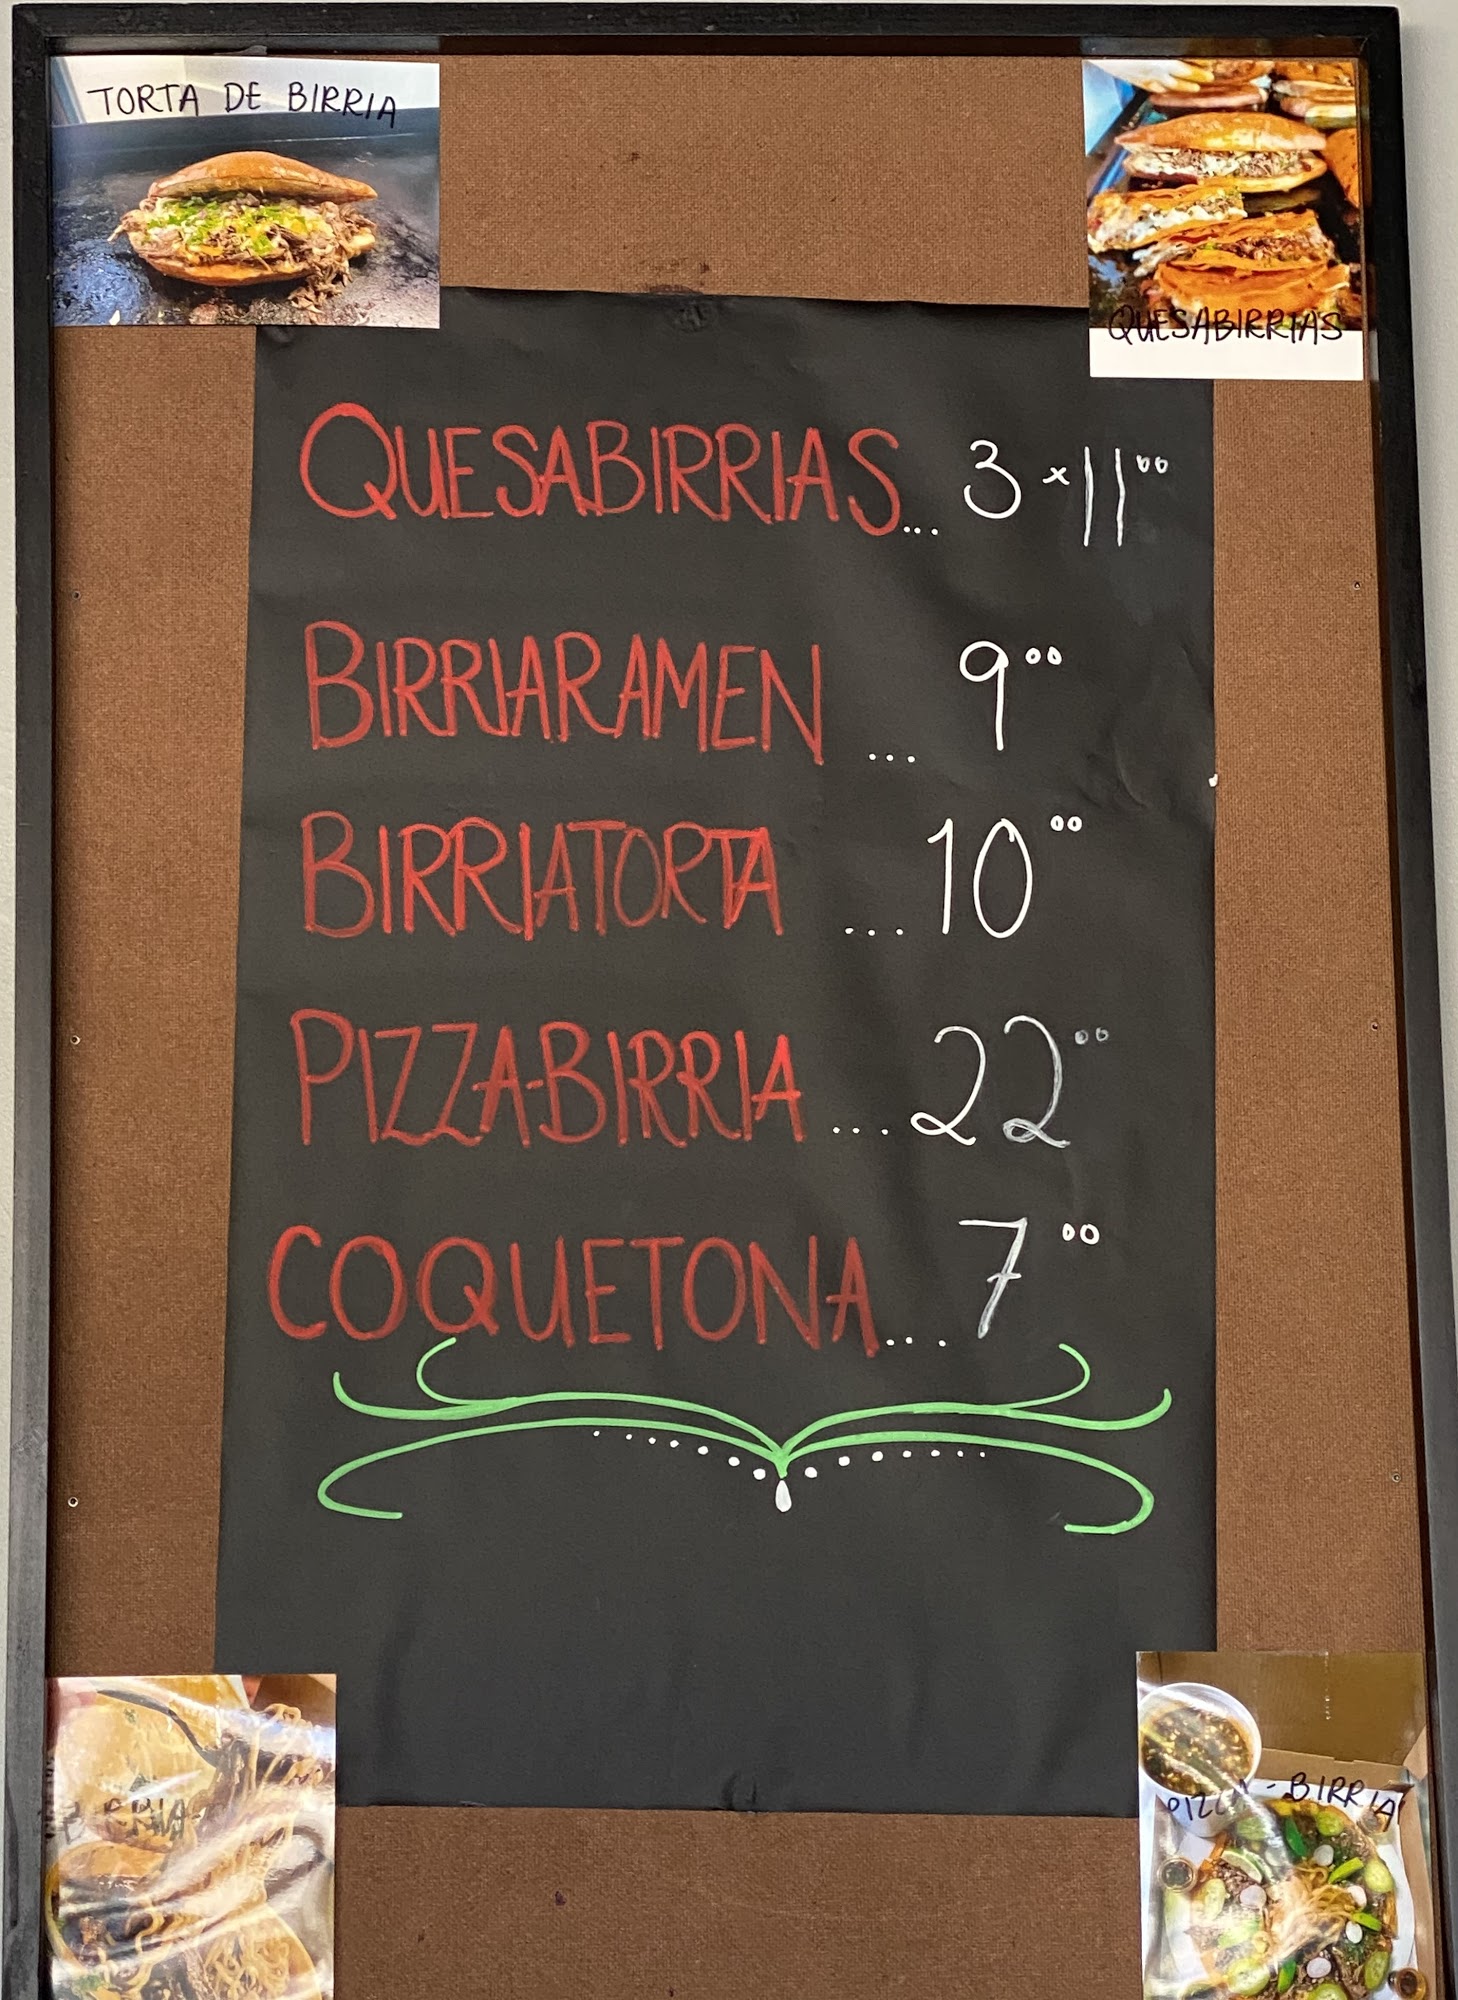 TORTA DE BIRRIA
QUESABIRRIAS
QUESABIRRIAS... 3 x 11⁰⁰
BIRRIARAMEN ... 9⁰⁰
BIRRIATORTA ... 10⁰⁰
PIZZA-BIRRIA ... 22⁰⁰
COQUETONA... 7⁰⁰
PIZZA-BIRRIA